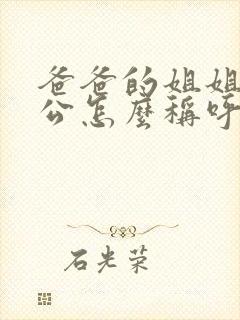 爸爸的姐姐
公怎麼稱呼
石光荣